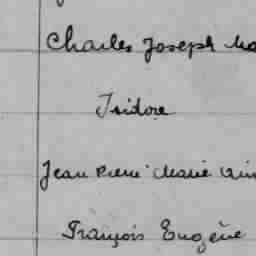 Charles Joseph Ma
Isidore
Jean Pierre Marie
François Eugène